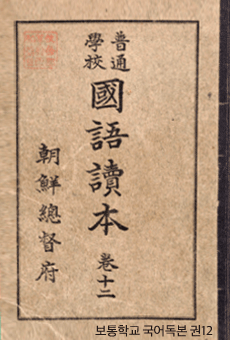 普通
學校
國語讀本 卷十二
朝鮮總督府
보통학교 국어독본 권12